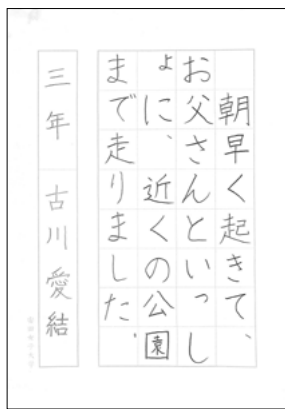 朝早く起きて、
お父さんといっし
ょに、近くの公園
まで走りました。
三年 古川愛結